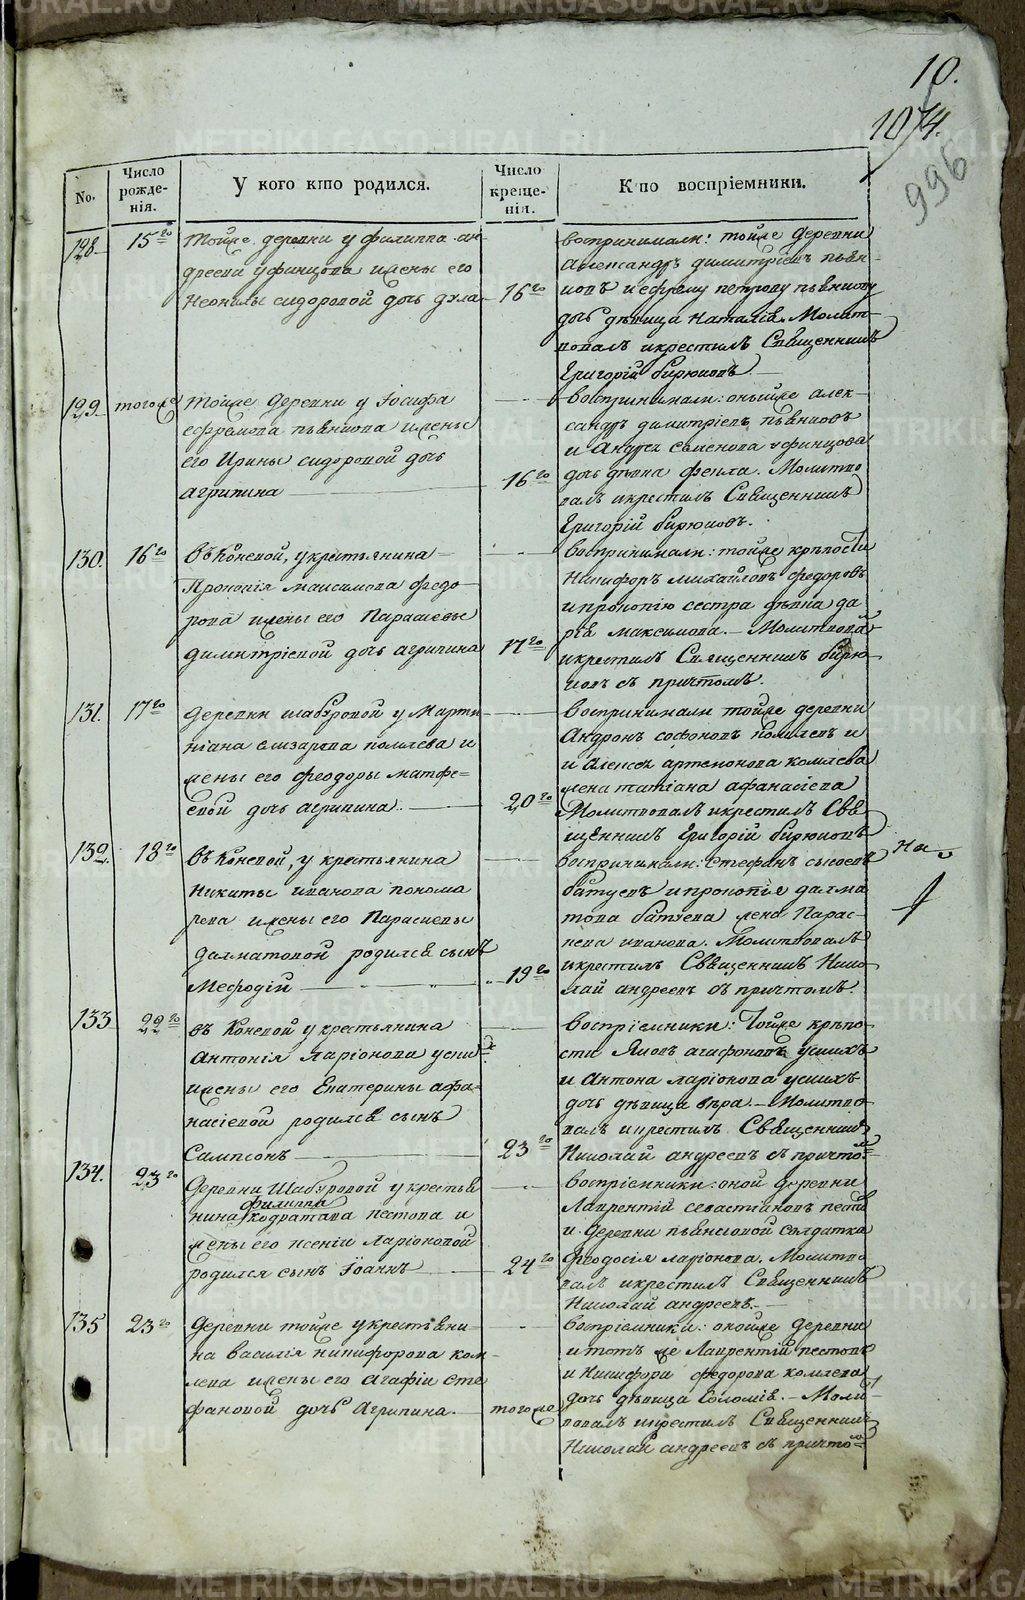 10.
1074.
996
No.
Число рожденія.
У кого кто родился.
Число крещенія.
Кто воспріемники.
128.
15го
тойже деревни у филиппа ан-
дреева уфинцова и жены его
Неонилы сидоровой дочь
16го
воспринимали: тойже деревни
Александръ димитріевъ пьян-
ковъ и ефрему петрову пьянкову
дочь дѣвица Наталія. Молит-
вовалъ и крестилъ Священникъ
Григорій бирюковъ
129.
тогоже
тойже деревни у Іосифа
ефремова пьянкова и жены
его Ирины сидоровой дочь
агрипина
16го
воспринимали: оныйже алек-
сандръ димитріевъ пьянковъ
и Андрея семенова уфинцова
дочь дѣвка фекла. Молитво-
валъ и крестилъ Священникъ
Григорій бирюковъ.
130.
16го
въ Коневой, у крестьянина
Прокопія максимова федо-
рова и жены его Парасковьи
димитріевой дочь агрипина
17го
воспринимали: тойже крѣпости
Никифоръ михайловъ федоровъ
и прокопію сестра дѣвка да-
рія максимова. — Молитвовалъ
и крестилъ Священникъ бирю-
ковъ съ причтомъ.
131.
17го
деревни шабуровой у Марти-
ніана елизарова комлева и
жены его феодоры матфе-
евой дочь агрипина.
20го
воспринимали тойже деревни
Андронъ софоновъ комлевъ и
и Алексея артемонова комлева
жена татіана афанасіева
Молитвовалъ и крестилъ Свя-
щенникъ Григорій бирюковъ
132.
18го
въ Коневой, у крестьянина
Никиты иванова понома-
рева и жены его Парасковьи
далматовой родился сынъ
Мефодій
19го
воспринимали: Стефанъ сысоевъ
батуевъ и прокопія далма-
това батуева жена Парас-
кева иванова. Молитвовалъ
и крестилъ Священникъ Нико-
лай андреевъ съ причтомъ.
133
22го
въ Коневой у крестьянина
Антонія ларіонова
и жены его Екатерины афа-
насіевой родился сынъ
Сампсонъ
23го
воспріемники: Тойже крѣпо-
сти Яковъ агафоновъ усихъ
и Антона ларіонова усихъ
дочь дѣвица вѣра. — Молитво-
валъ и крестилъ Священникъ
Николай андреевъ съ причтомъ
134.
23го
деревни Шабуровой у крестья-
филиппа
нина кодратава пестова и
жены его ксеніи ларіоновой
родился сынъ Іоаннъ
24го
воспріемники: оной деревни
Лаврентій севастіановъ пестовъ
и деревни пьянковой солдатка
Феодосія ларіонова. Молитво-
валъ и крестилъ Священникъ
Николай андреевъ.
135
23го
деревни тойже у крестьяни-
на василія никифорова ком-
лева и жены его агафіи сте-
фановой дочь Агрипина.
тогоже
воспріемники: онойже деревни
и тотъ же Лаврентій пестовъ
и Никифора федорова комлева
дочь дѣвица Соломія. — Моли-
вовалъ и крестилъ Священникъ
Николай андреевъ съ причтомъ
METRIKI.GASO-URAL.RU